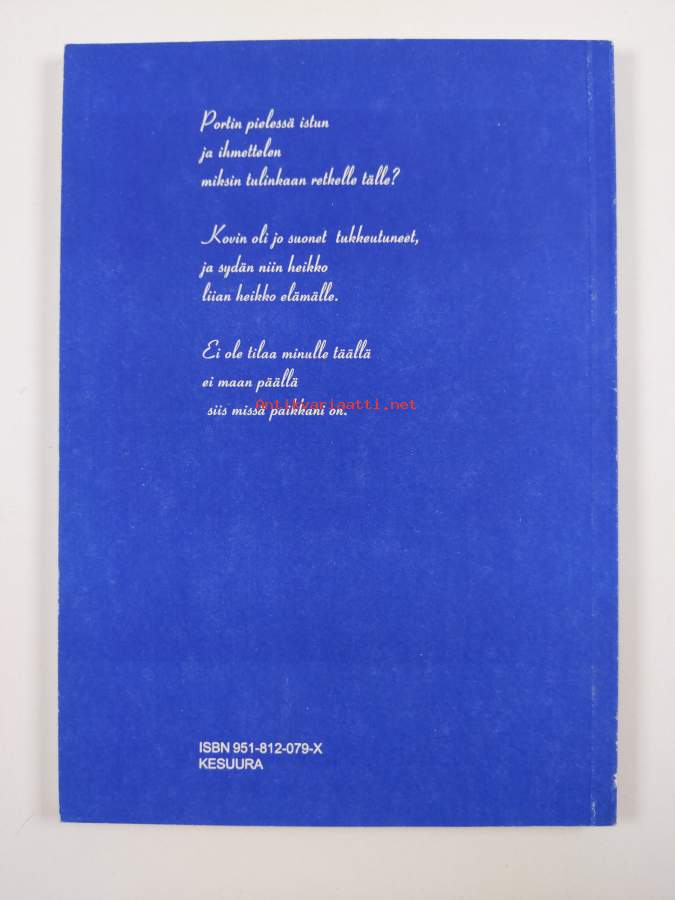 Portin pielessä istun
ja ihmettelen
miksin tulinkaan retkelle tälle?
Kovin oli jo suonet tukkeutuneet,
ja sydän niin heikko
liian heikko elämälle.
Ei ole tilaa minulle täällä
ei maan päällä
siis missä paikkani on.
Antikvariaatti.net
ISBN 951-812-079-X
KESUURA